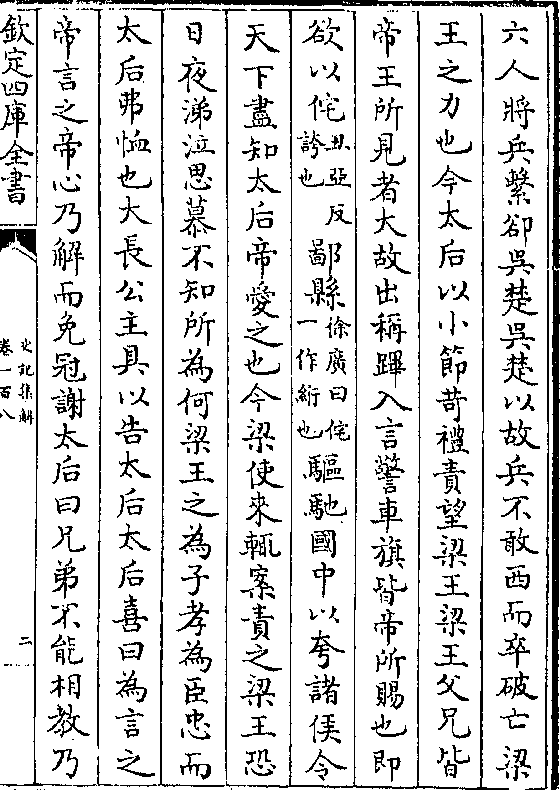 六人將兵繫卻吳楚吳楚以故兵不敢西而卒破亡梁
王之力也今太后以小節苛禮責望梁王梁王父兄皆
帝王所見者大故出稱蹕入言警車旗皆帝所賜也即
欲以侘丑亞反誇也鄙縣徐廣曰侘一作紨也驅馳國中以夸諸侯令
天下盡知太后帝愛之也今梁使來輒案責之梁王恐
日夜涕泣思慕不知所為何梁王之為子孝為臣忠而
太后弗恤也大長公主具以告太后太后喜曰為言之
帝言之帝心乃解而免冠謝太后曰兄弟不能相教乃
欽定四庫全書
史記集解
卷一百八
二